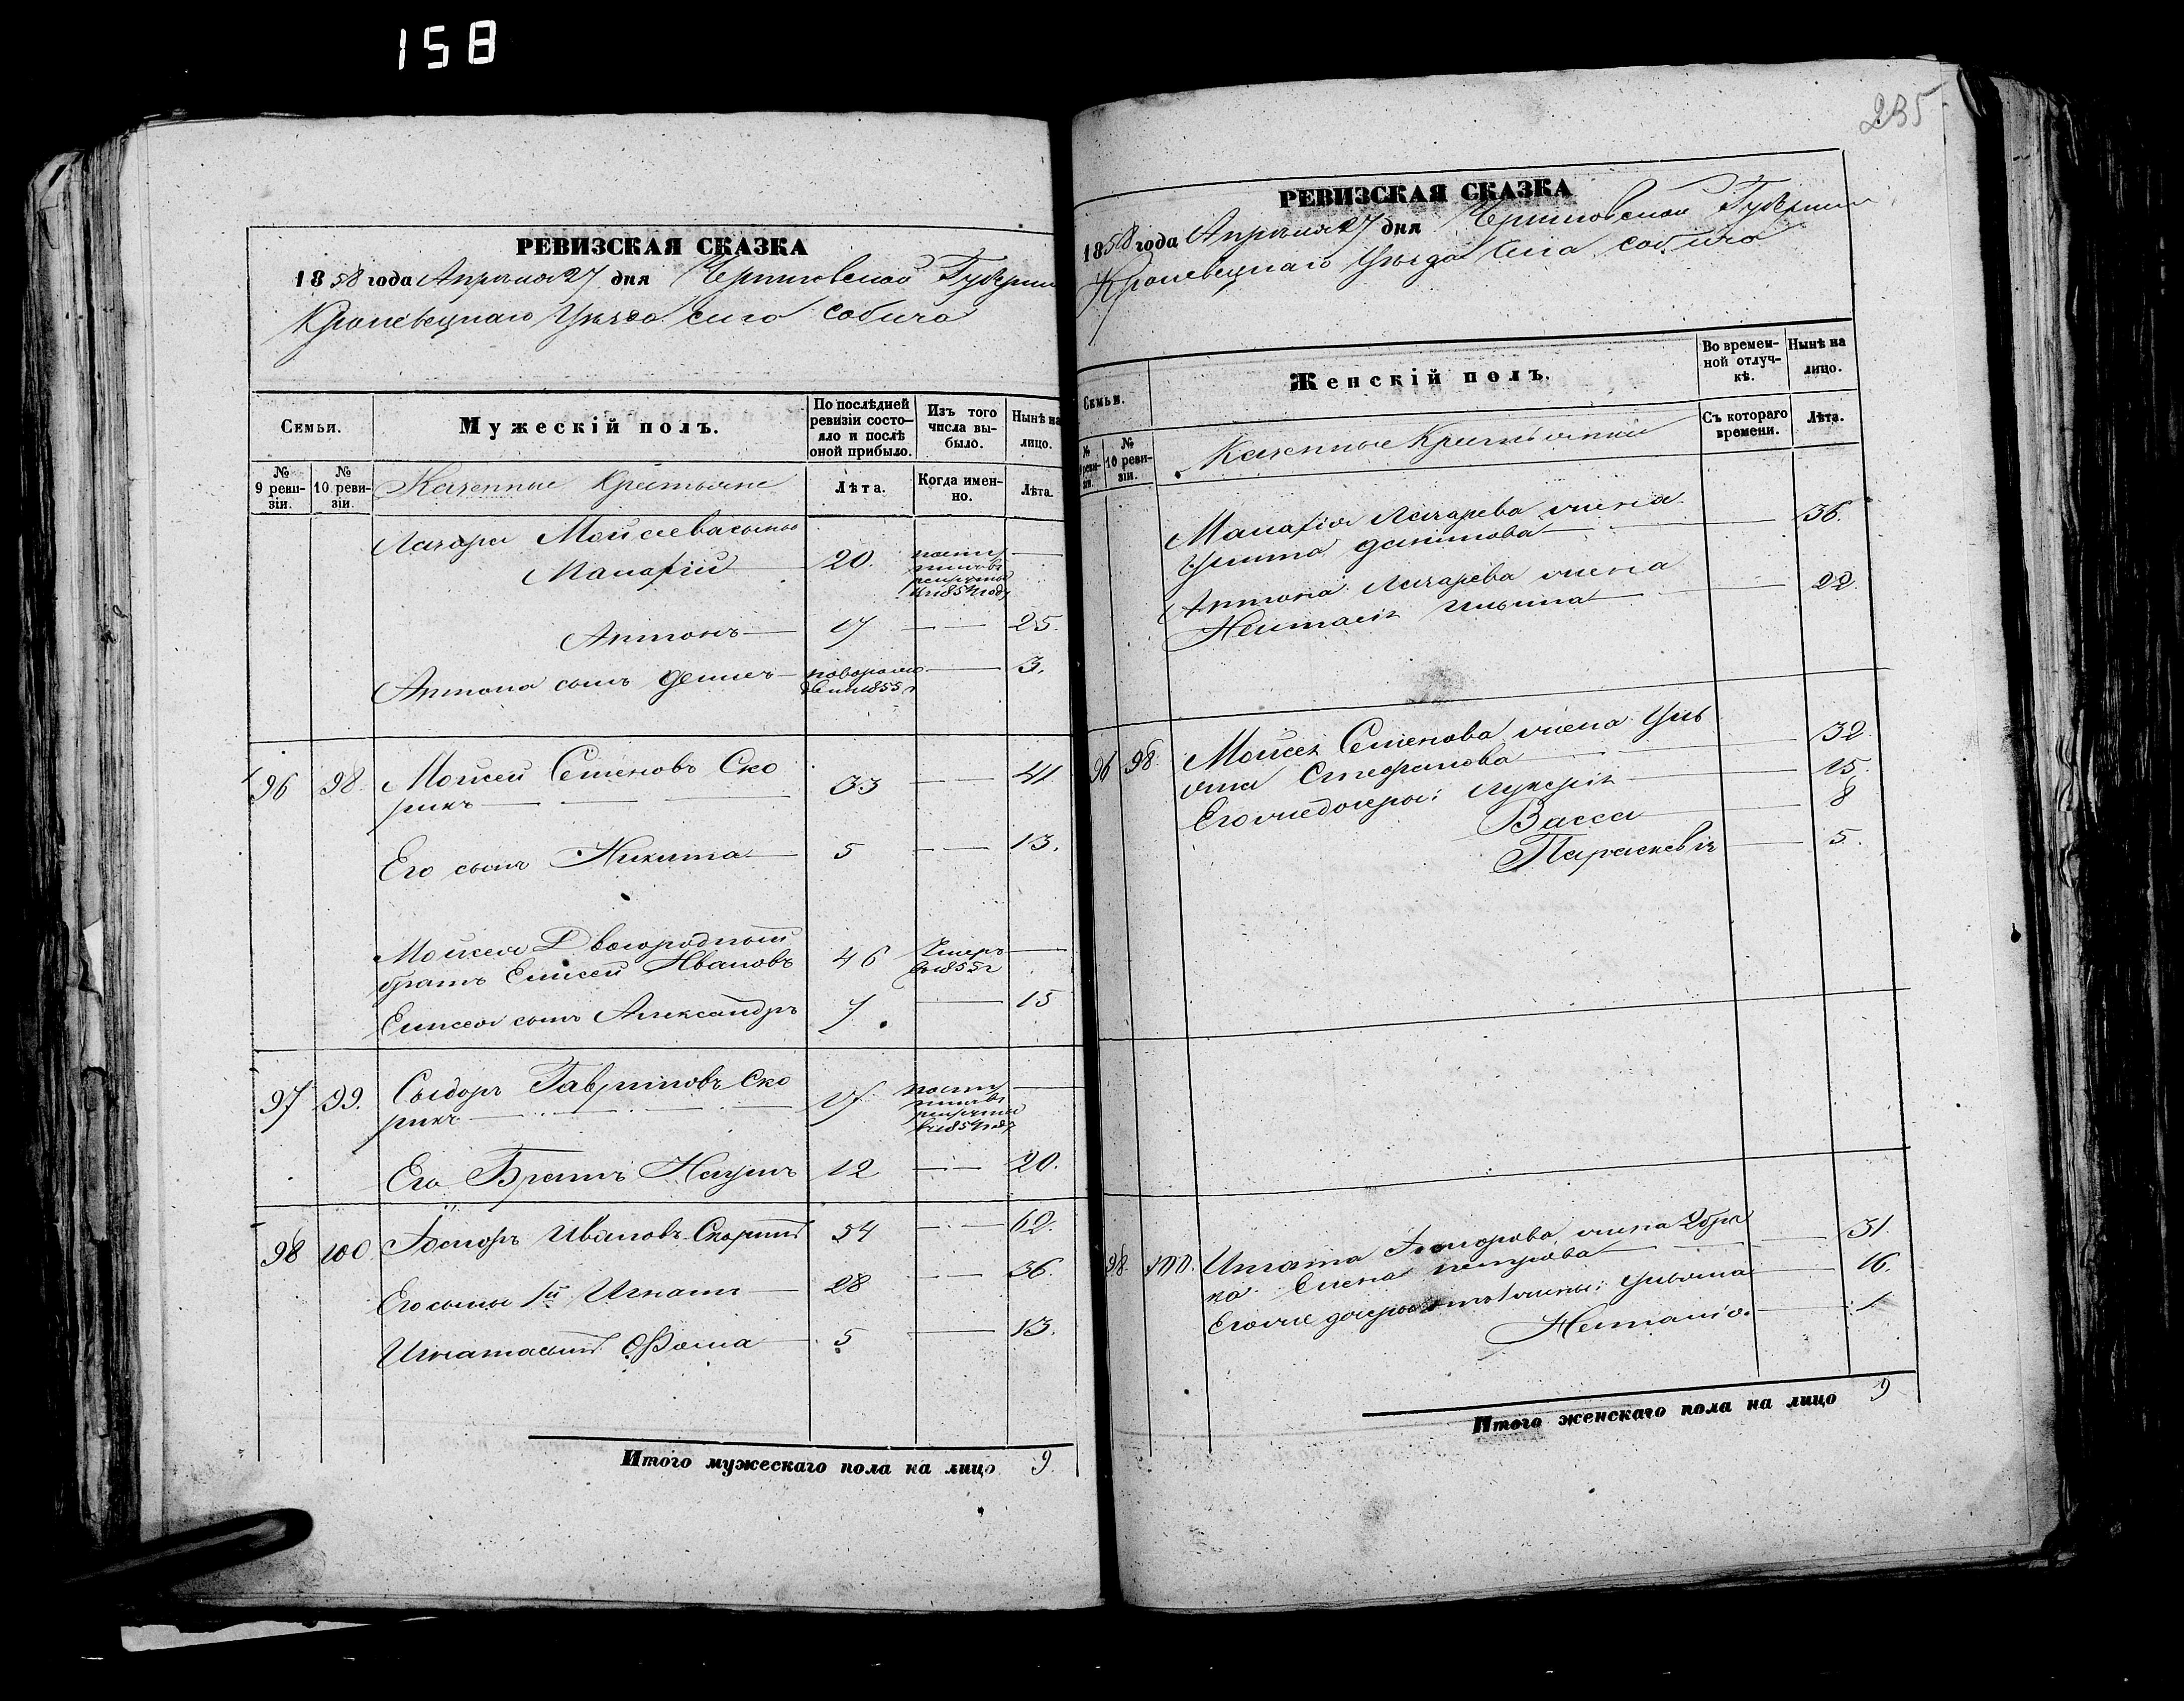 158
235
РЕВИЗСКАЯ СКАЗКА
1858 года Апреля 27 дня Черниговской Губернии
Кролевецкаго Уезда села Собича
Семьи.
Мужескій полъ.
По послѣдней ревизіи состояло и послѣ оной прибыло.
Изъ того числа выбыло.
Нынѣ на лицо.
№ 9 ревизіи.
№ 10 ревизіи.
Казенные Крестьяне
Лѣта.
Когда именно.
Лѣта.
Лазаря Мойсеева сыны
Макарій 20. поступилъ в рекруты в 1854 году
Антонъ 17 25.
Антона сынъ Денис новорожденный 1855 г 3.
96 98. Мойсей Семеновъ Ско
рикъ 33 41
Его сынъ Никита 5 13.
Мойсея Двоюродный
братъ Елисей Ивановъ 46 Умеръ в 1855 г
Елисея сынъ Александръ 7. 15
97 99. Сыдоръ Гавриловъ Ско
рикъ 17 поступилъ в рекруты в 1854 году
Его Братъ Наумъ 12 20.
98 100 Федоръ Ивановъ Скорикъ 54 62.
Его сынъ 1й Игнатъ 28 36.
Игната сынъ Фома 5 13.
Итого мужескаго пола на лицо 9
РЕВИЗСКАЯ СКАЗКА
1858 года Апреля 27 дня Черниговской Губернии
Кролевецкаго Уезда села Собича
Семьи.
Женскій полъ.
Во временной отлучкѣ.
Нынѣ на лицо.
№ 9 ревизіи.
№ 10 ревизіи.
Казенные Крестьянки
Съ котораго времени.
Лѣта.
Макарія Лазарева жена
Данилова 36.
Антона Лазарева жена
Наталія Ильина 22.
96 98. Мойсея Семенова жена Уль
яна Стефанова 32.
Его же дочери: Лукерія 15.
Васса 8
Параскевія 5.
98 100. Игната Федорова жена 2 бра
ка Елена Петрова 31.
Его же дочери от 1 жены: Ульяна 16.
Наталія. 1
Итого женскаго пола на лицо 9